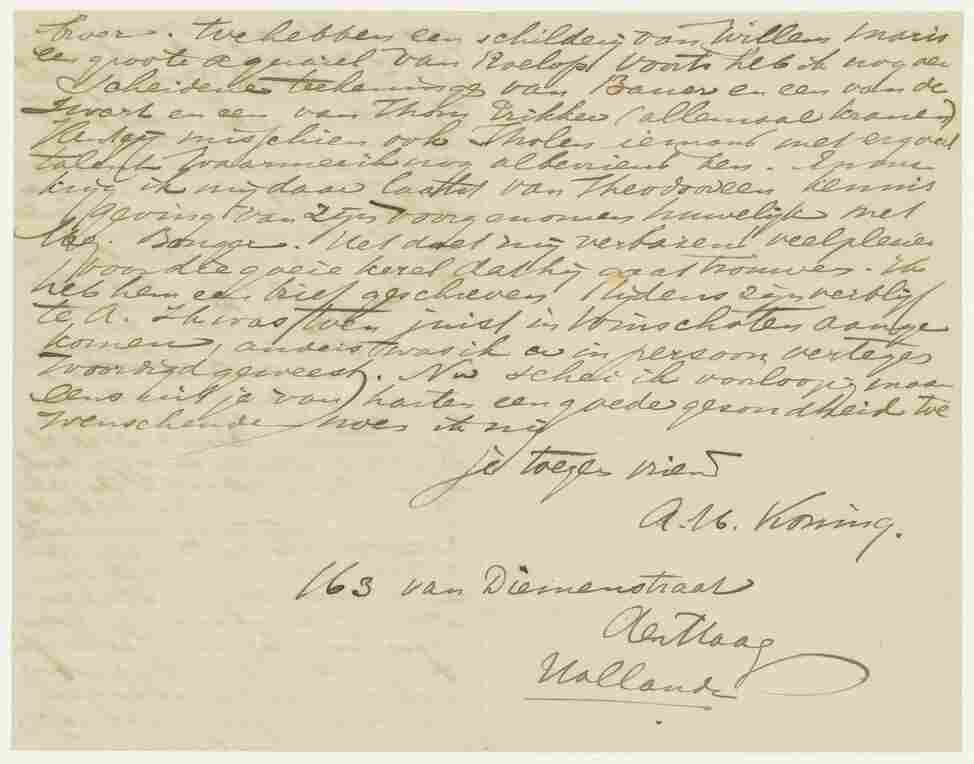 voor. We hebben een schilderij van Willem Maris
een groote aquarel van Roelofs voorts heb ik nog ver
scheidene teekeningen van Bauer en een van de
Zwart en een van Thorn Prikker (allemaal kranen)
Ken jij misschien ook Tholen iemand met ergveel
talent waarmee ik nog al bevriend ben.
krijg ik mij daar laatst van Theodoor een kennis
geving van zijn voorgenomen huwelijk met
Mej. Bonger. Het doet mij verbazend veel plezier
voor die goeie kerel dat hij gaat trouwen. Ik
heb hem een brief geschreven tijdens zijn verblijf
te A. Ik was toen juist in Winschoten aange
komen, anders was ik er in persoon vertegen
woordigd geweest. Nu schei ik voorloopig maar
eens uit je van harte een goede gezondheid toe
wenschende noem ik mij
je toegen vriend
A. H. Koning.
163 van Diemenstraat
den Haag
Hollande